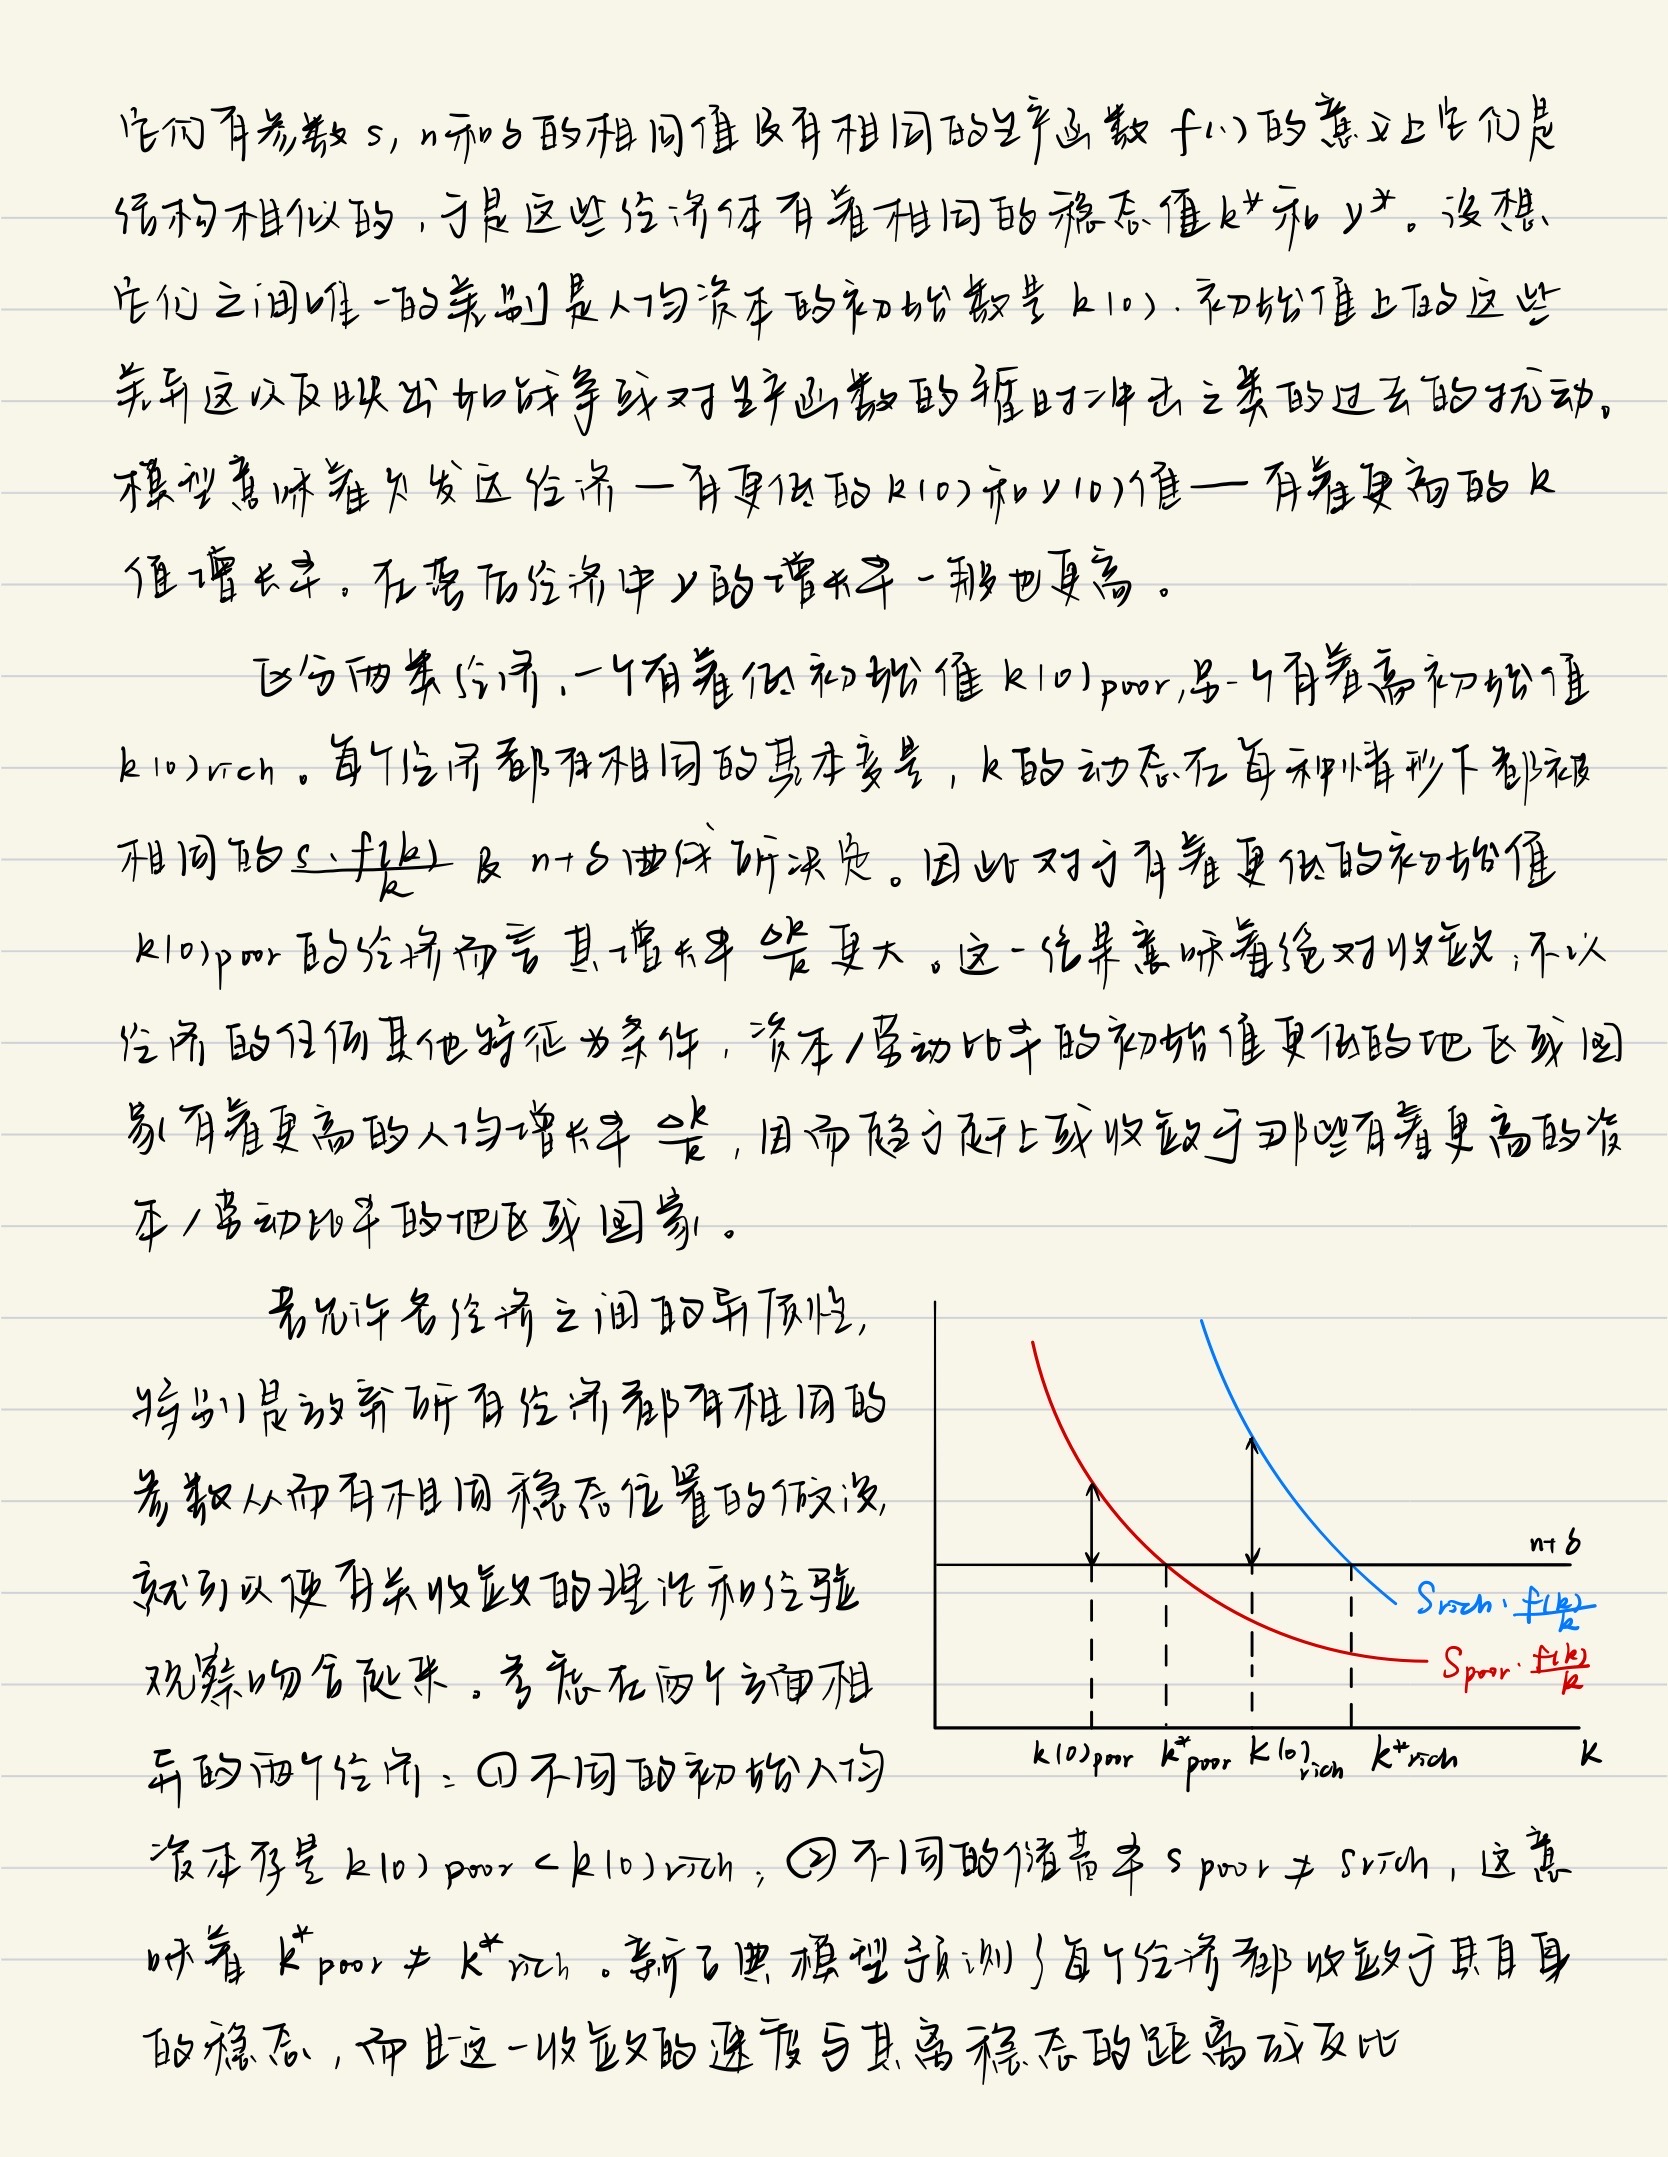 它们有参数 s, n和δ的相同值及有相同的生产函数 f(·)的意义上它们是
结构相似的，于是这些经济体有着相同的稳态值k*和 y*。设想
它们之间唯一的差别是人均资本的初始数量 k(0). 初始值上的这些
差异这以反映出如战争或对生产函数的暂时冲击之类的过去的扰动。
模型意味着欠发达经济—有更低的k(0)和y(0)值—有着更高的 k
值增长率。在落后经济中 y的增长率一般也更高。
区分两类经济，一个有着低初始值 k(0)poor,另一个有着高初始值
k(0)rich。每个经济都有相同的基本变量，k的动态在每种情形下都被
相同的 s·f(k)/k 及 n+δ曲线所决定。因此对于有着更低的初始值
k(0)poor的经济而言其增长率 Δk/k 更大。这一结果意味着绝对收敛：不以
经济的任何其他特征为条件，资本/劳动比率的初始值更低的地区或国
家有着更高的人均增长率 Δk/k，因而趋于赶上或收敛于那些有着更高的资
本/劳动比率的地区或国家。
若允许各经济之间的异质性，
特别是放弃所有经济都有相同的
参数从而有相同稳态位置的假设，
就可以使有关收敛的理论和经验
观察吻合起来。考虑在两个方面相
异的两个经济：①不同的初始人均
资本存量 k(0)poor < k(0)rich；②不同的储蓄率 s poor ≠ s rich，这意
味着 k*poor ≠ k*rich。新古典模型预测了每个经济都收敛于其自身
的稳态，而且这一收敛的速度与其离稳态的距离成反比
n+δ
Srich·f(k)/k
Spoor·f(k)/k
k(0)poor k*poor k(0)rich k*rich K